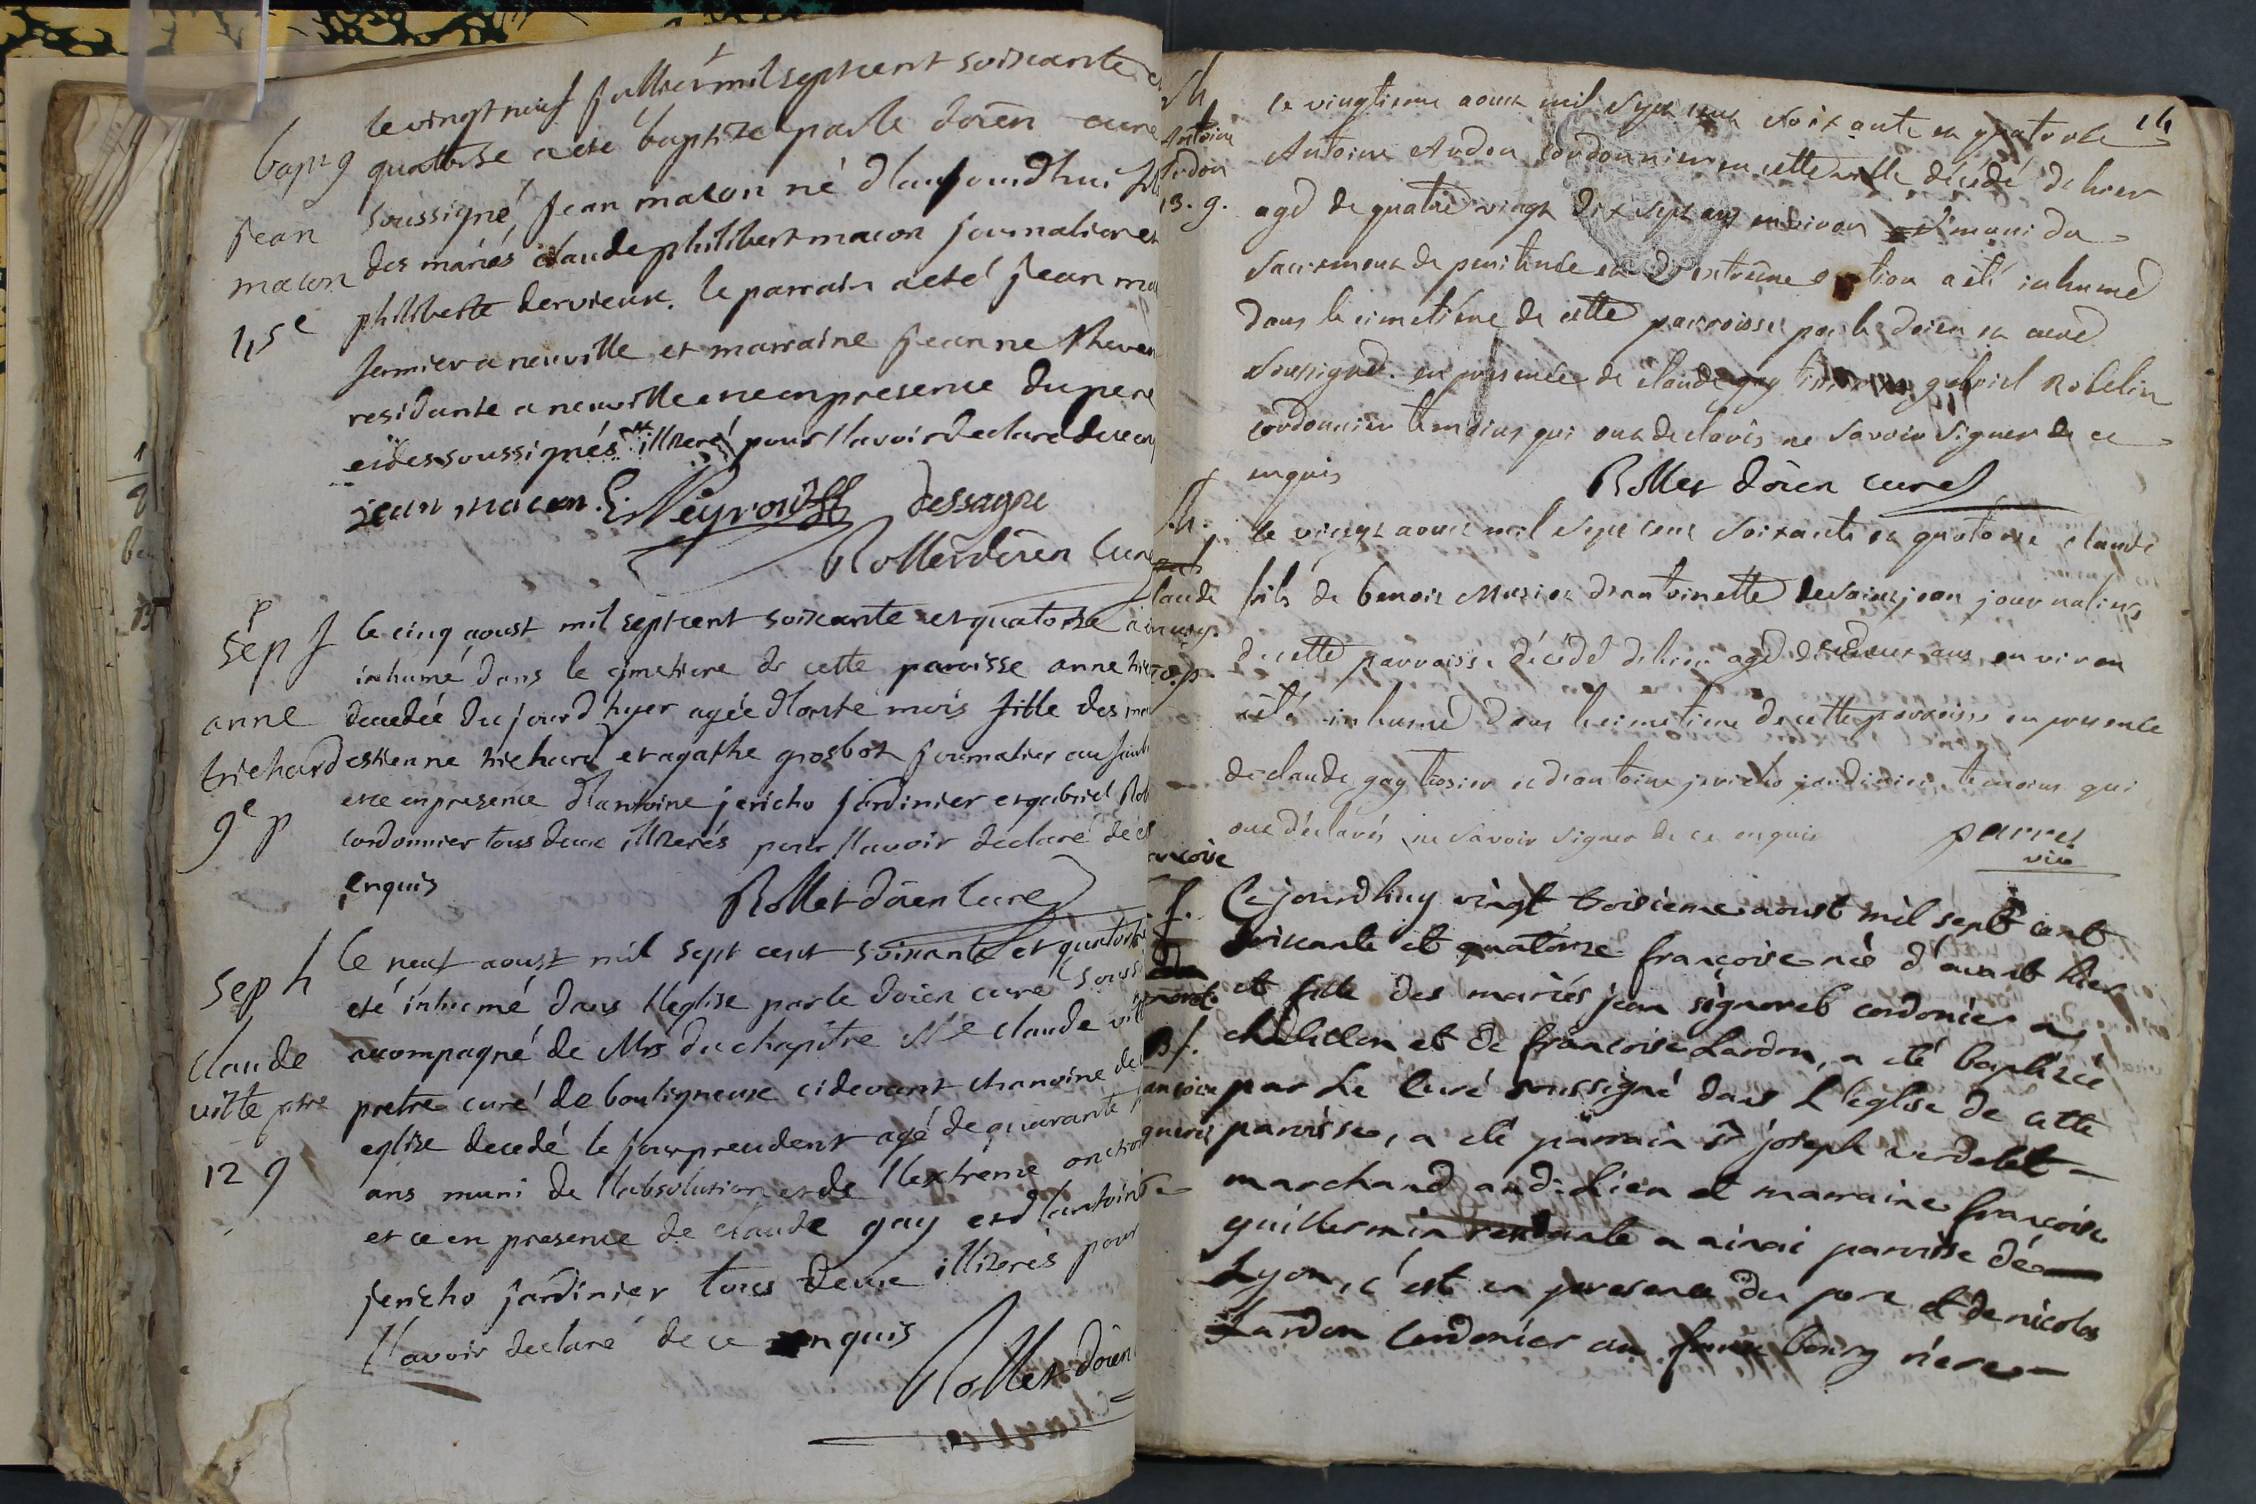 le vingt neuf juillier mil sept cent soixante
quatorse a eté baptizé par le doïen curé
soussigné, jean macon né d'aujourdhui fils
des mariés claude philibert macon journalier et
philiberte dervieux. le parrain a eté jean
fermier a neuville et marraine jeanne
residante a neuville et ce en presence du pere
et des soussignés illiteré pour l'avoir declaré de ce
jean macon. Peyrouse dessagne
Rollet doïen curé
bapt g
jean
macon
15e
le cinq aoust mil sept cent soixante et quatorse a
inhumé dans le cimetiere de cette paroisse anne
decedée du jour d'hyer agée d'onse mois fille des
estienne trichard et agathe grosbot journalier au
et ce en presence d'antoine jericho jardinier et gabriel
cordonnier tous deux illiterés pour l'avoir declaré de ce
enquis
Rollet doïen curé
sep f
anne
trichard
9e p
le neuf aoust mil sept cent soixante et quatorse
eté inhumé dans l'eglise par le doïen curé
accompagné de Mrs du chapitre Mre claude
pretre curé de bouligneux cidevant chanoine de
eglise decedé le jour precedent agé de quarante
ans muni de l'absolution et de l'extrême onction
et ce en presence de claude gay et d'antoine
jericho jardinier tous deux illiterés pour
l'avoir declaré de ce enquis
Rollet doïen
sep h
claude
vitte ptre
12 g
14
le vingtieme aoust mil sept cent soixante et quatorse
Antoine Audon cordonnier en cette ville décédé de hier
agé de quatre vingt dix sept ans environ muni du
sacrement de penitence et d'extrême onction a été inhumé
dans le cimetiére de cette parroisse par le doien et curé
soussigné. en presence de claude gay gabriel Robelin
cordonnier temoins qui ont declarés ne savoir signer de ce
enquis
Rollet doïen curé
Antoine
Audon
13. g.
le vingt aoust mil sept cent soixante et quatorse claude
fils de benoit Musi et d'antoinette desaintjean journaliers
de cette parroisse décédé d'hier agé de deux ans environ
a été inhumé dans le cimetiere de cette parroisse en presence
de claude gay et d'antoine jericho jardinier temoins qui
ont déclarés ne savoir signer de ce enquis
parret
vic
claude
Cejourdhuy vingt troisieme aoust mil sept cent
soixante et quatorze françoise née d'avant hier
et fille des mariés jean signoret cordonier a
chatillon et de françoise Lardon, a eté baptizée
par Le Curé soussigné dans L'église de cette
paroisse, a eté parrain Sr joseph verdelet
marchand audit Lieu et marraine françoise
guillermin residante a ainai paroisse de
Lyon, c'est en presence du pere et de nicolas
Lardon Cordonier au faux bourg